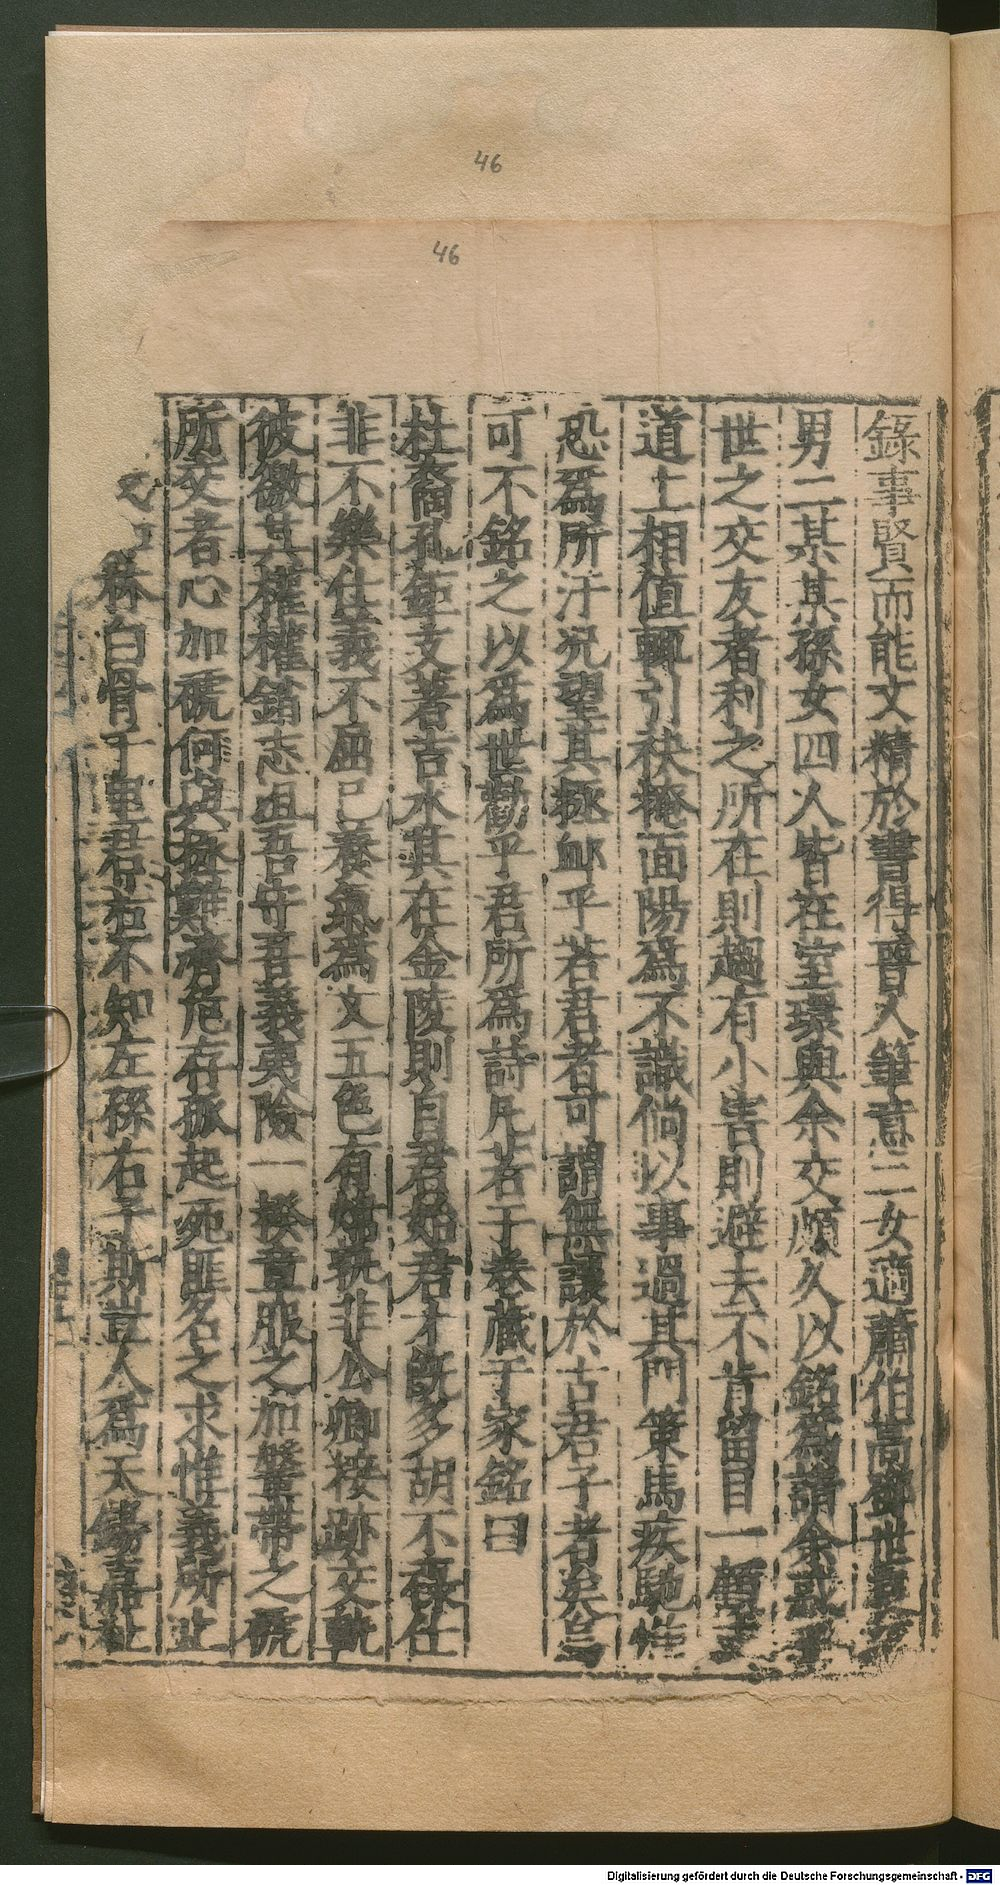 46
46
錄事賢而能文精於書得晉人筆意二女適蕭伯高鄧世
男二某某孫女四人皆在室環與余交頗久以銘爲請余惑
世之交友者利之所在則趨有小害則避去不肯留目一顧
道上相值輒引袂掩面陽爲不識倘以事過其門策馬疾馳惟
恐爲所汙况望其拯卹乎若君者可謂無讓於古君子者矣
可不銘之以爲世勸乎君所爲詩凡若干卷藏于家銘曰
杜裔孔鉅支著吉水其在金陵則自君始君才既多胡不祿仕
非不樂仕義不屈己養氣爲文五色有煒孰非公卿接跡交軌
彼徼其權權銷志沮吾守吾義夷險一揆章服之加鞶帶之褫
所交者心加褫何與拯難濟危存孤起死匪名之求惟義所止
白骨千里君右不知左孫右子斯豈人爲天錫嘉祉
Digitalisierung gefördert durch die Deutsche Forschungsgemeinschaft - DFG